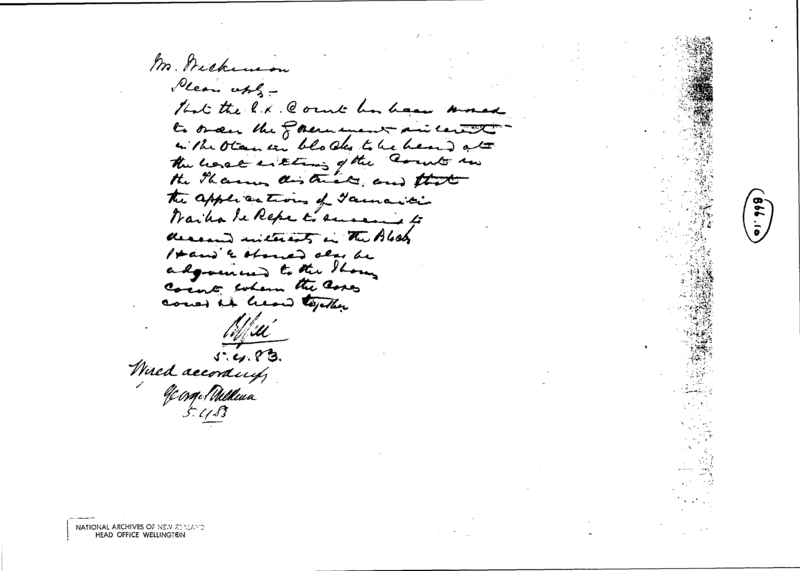 Mr. Wilkinson
Please reply –
that the Court has been moved
to order the Government interests
in the blocks to be heard at
the next sitting of the Court in
the Thames district, and that
the applications of Tamaiti
Waiha Te Repe to succeed to
deceased interests in the Block
should also be
adjourned to the Thames
Court where the Cases
could be heard together
5.4.83.
Wired accordingly
George Wilkinson
5.4.83
B66.10
NATIONAL ARCHIVES OF NEW ZEALAND
HEAD OFFICE WELLINGTON